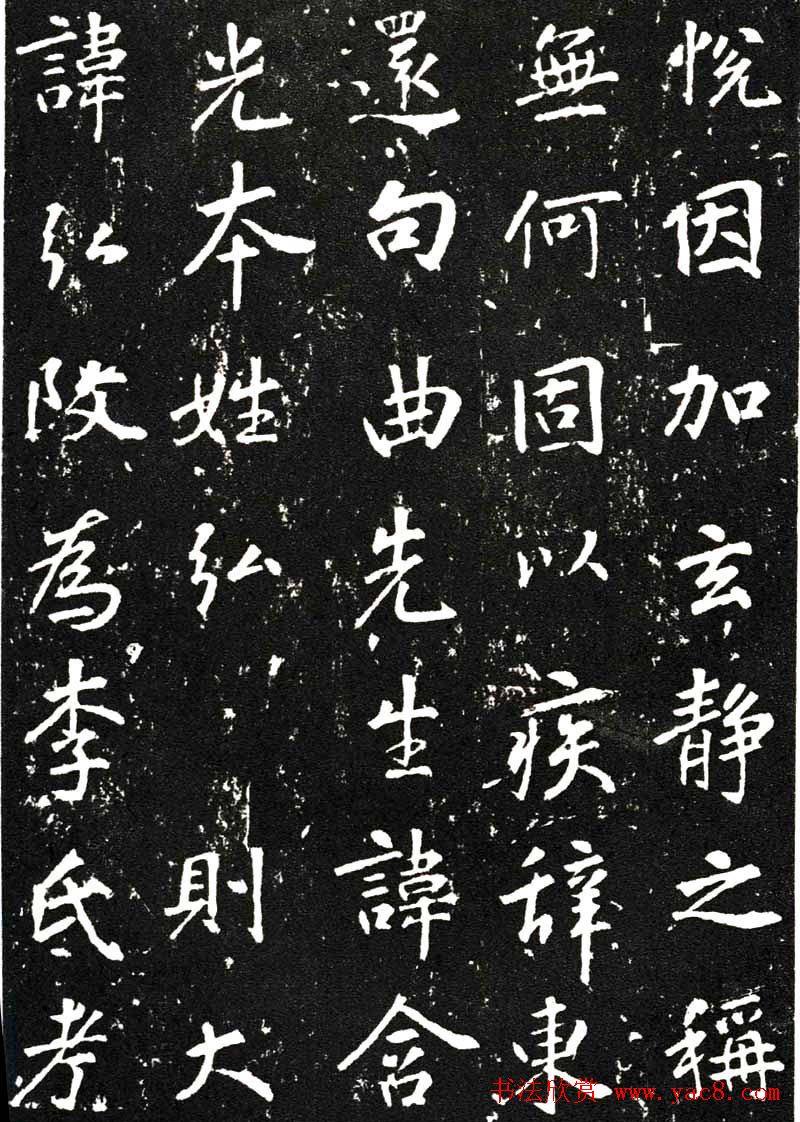 悅因加玄靜之稱
無何固以疾辭東
還句曲先生諱含
光本姓弘　則大
諱弘改為李氏考
书法欣赏 www.yac8.com